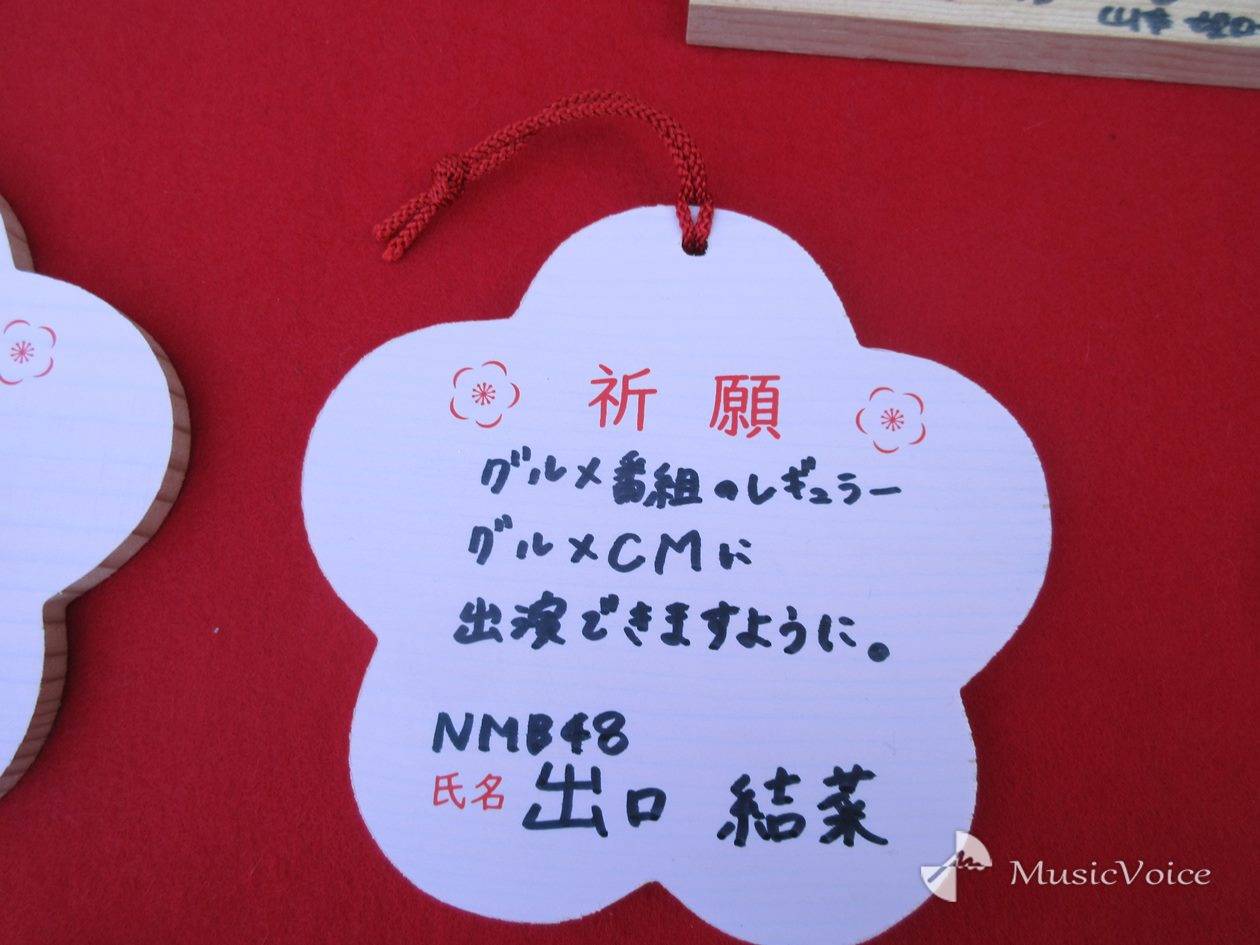 祈願
グルメ番組のレギュラー
グルメCMに
出演できますように。
NMB48
氏名 出口 結菜
MusicVoice